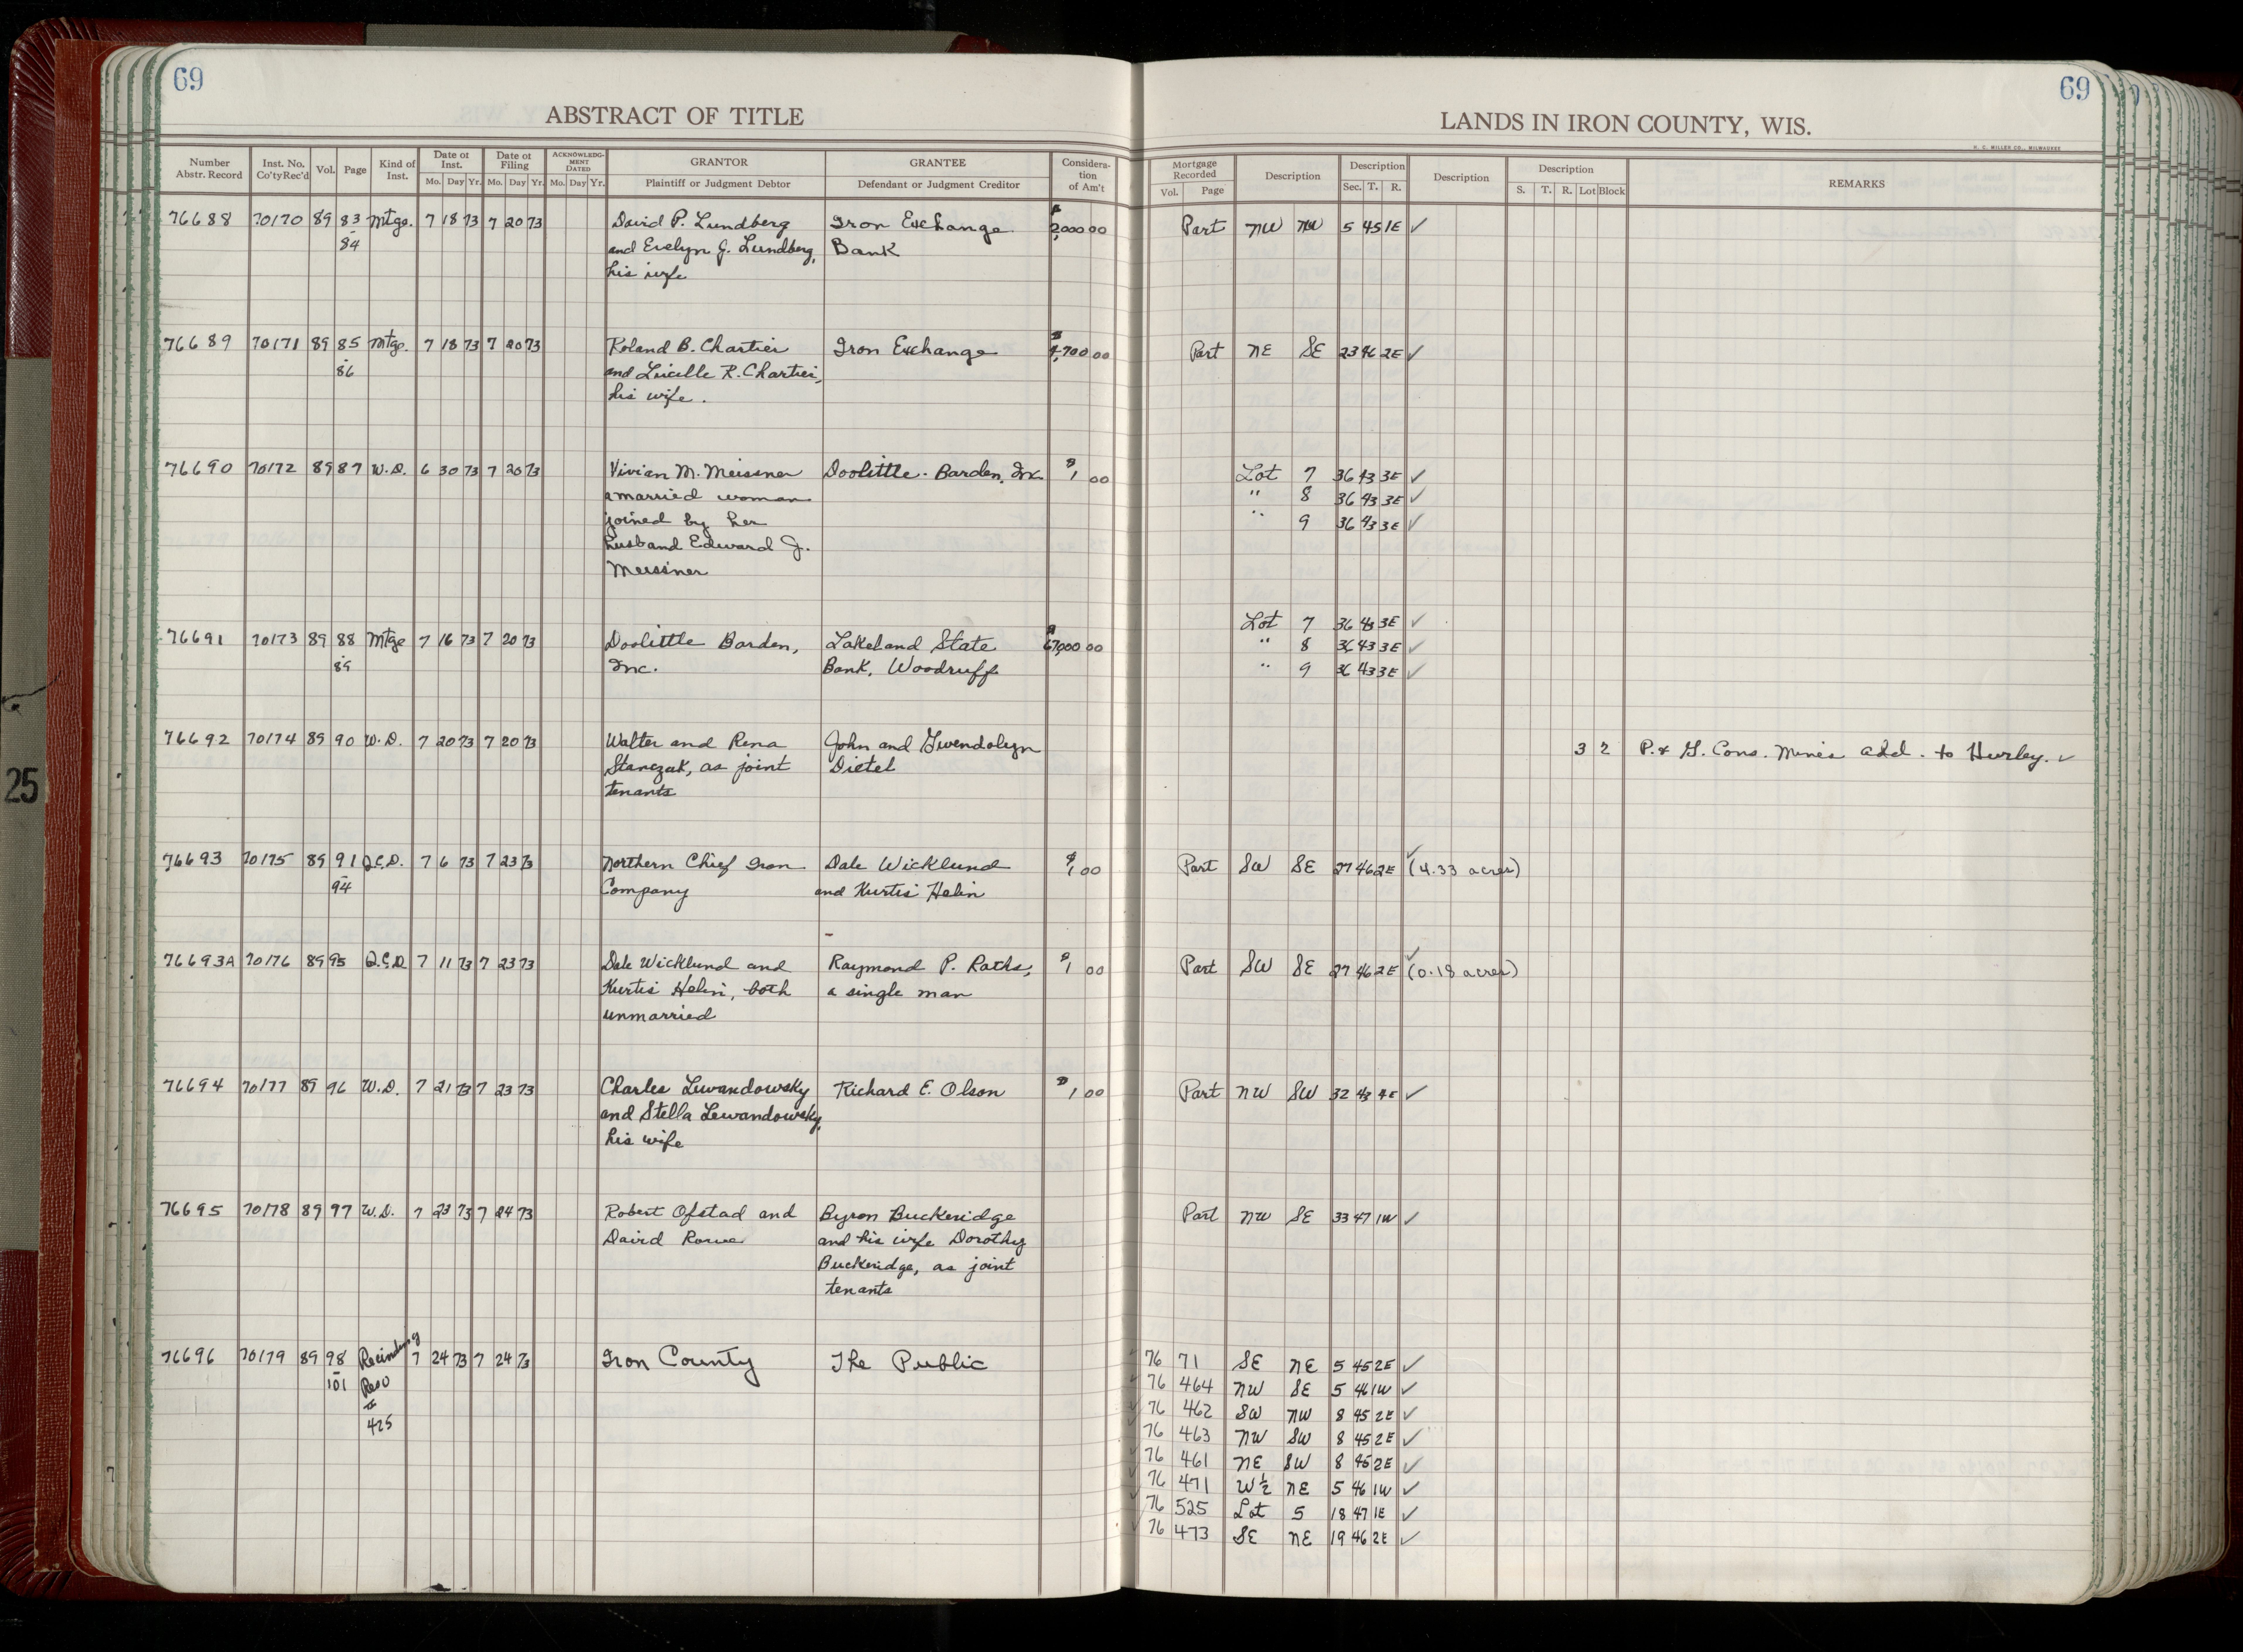 69
ABSTRACT OF TITLE
Number Abstr. Record Inst. No. Co'ty Rec'd Vol. Page Kind of Inst. Date of Inst. Mo. Day Yr. Date of Filing Mo. Day Yr. ACKNOWLEDGMENT DATED Mo. Day Yr. GRANTOR Plaintiff or Judgment Debtor GRANTEE Defendant or Judgment Creditor Consideration of Am't
76688 70170 89 83 Mtge. 7 18 73 7 20 73 David P. Lundberg Iron Exchange $2,000 00
- 84 and Evelyn J. Lundberg, Bank
his wife
76689 70171 89 85 Mtge. 7 18 73 7 20 73 Roland B. Chartier Iron Exchange $4,700 00
- 86 and Lucille R. Chartier,
his wife.
76690 70172 89 87 W.D. 6 30 73 7 20 73 Vivian M. Meissner Doolittle - Barden, Inc. $1 00
a married woman
joined by her
husband Edward J.
Meissner
76691 70173 89 88 Mtge 7 16 73 7 20 73 Doolittle Barden, Lakeland State $67,000 00
- 89 Inc. Bank, Woodruff
76692 70174 89 90 W.D. 7 20 73 7 20 73 Walter and Rena John and Gwendolyn
Stanczak, as joint Dietel
tenants
76693 70175 89 91 Q.C.D. 7 6 73 7 23 73 Northern Chief Iron Dale Wicklund $1 00
- 94 Company and Kurtis Helin
76693A 70176 89 95 Q.C.D. 7 11 73 7 23 73 Dale Wicklund and Raymond P. Raths, $1 00
Kurtis Helin, both a single man
unmarried
76694 70177 89 96 W.D. 7 21 73 7 23 73 Charles Lewandowsky Richard E. Olson $1 00
and Stella Lewandowsky,
his wife
76695 70178 89 97 W.D. 7 23 73 7 24 73 Robert Ofstad and Byron Buckeridge
David Rowe and his wife Dorothy
Buckeridge, as joint
tenants
76696 70179 89 98 Recinding 7 24 73 7 24 73 Iron County The Public
- 101 Reso
#
425
69
LANDS IN IRON COUNTY, WIS.
H. C. MILLER CO., MILWAUKEE
Mortgage Recorded Vol. Page Description Description Sec. T. R. Description Description S. T. R. Lot Block REMARKS
Part NW NW 5 45 1E ✓
Part NE SE 23 46 2E ✓
Lot 7 36 43 3E ✓
" 8 36 43 3E ✓
" 9 36 43 3E ✓
Lot 7 36 43 3E ✓
" 8 36 43 3E ✓
" 9 36 43 3E ✓
3 2 P. & G. Cons. Mines add. to Hurley. ✓
Part SW SE 27 46 2E ✓ (4.33 acres)
Part SW SE 27 46 2E ✓ (0.18 acres)
Part NW SW 32 43 4E ✓
Part NW SE 33 47 1W ✓
76 71 SE NE 5 45 2E ✓
76 464 NW SE 5 46 1W ✓
76 462 SW NW 8 45 2E ✓
76 463 NW SW 8 45 2E ✓
76 461 NE SW 8 45 2E ✓
76 471 W½ NE 5 46 1W ✓
76 525 Lot 5 18 47 1E ✓
76 473 SE NE 19 46 2E ✓
25